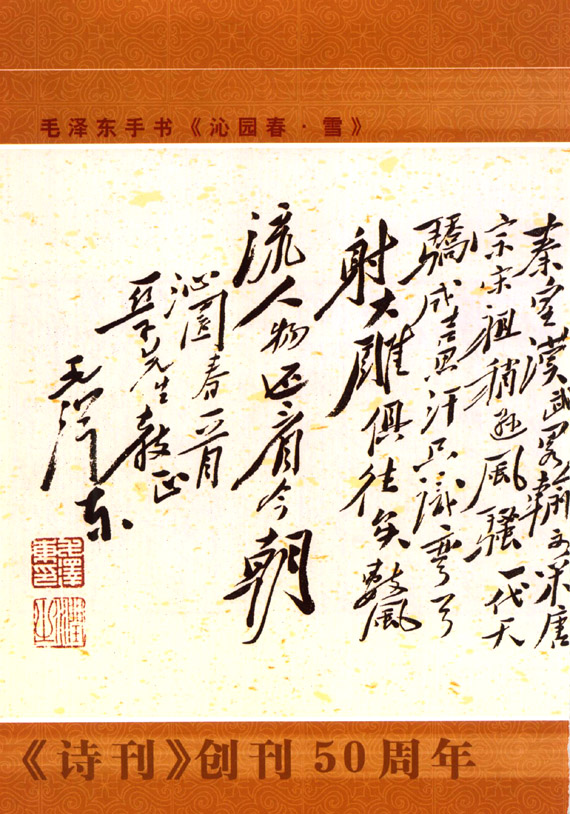 毛泽东手书《沁园春·雪》
秦皇漢武略輸文采唐
宗宋祖稍遜風騷一代天
驕成吉思汗只識彎弓
射大雕俱往矣數風
流人物还看今朝
沁園春一首
亞子先生教正
毛澤东
毛澤東印
潤之
《诗刊》创刊50周年